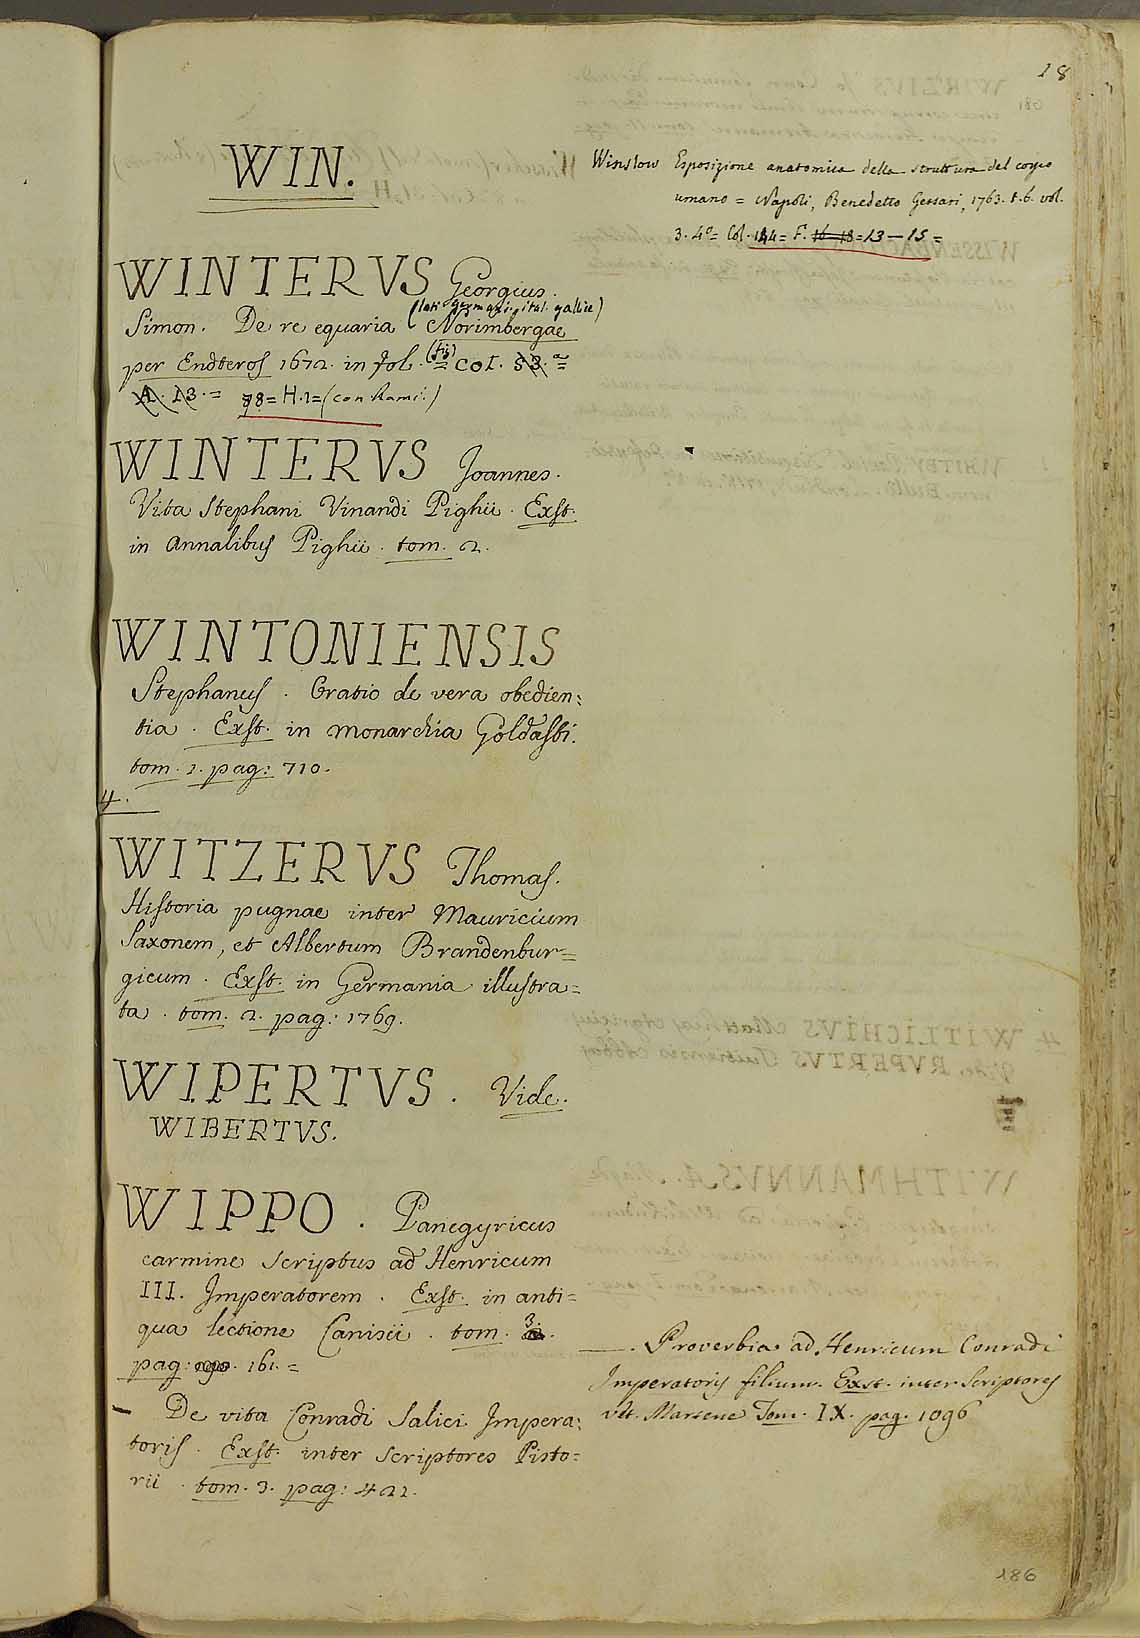 18
WIN.
WINTERVS Georgius
Simon. De re equaria (lati. germani. ital. gallie)
Norimbergae
per Endteros 1672. in fol. (fig) = col.
78 = H.1 = (con Rami.)
WINTERVS Joannes.
Vita Stephani Vinandi Pighii. Exst.
in Annalibus Pighii. tom. 2.
WINTONIENSIS
Stephanus. Oratio de vera obedien:
tia. Exst. in Monarchia Goldasti.
tom. 1. pag: 710.
4.
WITZERVS Thomas.
Historia pugnae inter Mauricium
Saxonem, et Albertum Brandenbur=
gicum. Exst. in Germania illustra=
ta. tom. 2. pag: 1769.
WIPERTVS. Vide.
WIBERTVS.
WIPPO. Panegyricus
carmine scriptus ad Henricum
III. Imperatorem. Exst. in anti=
qua lectione Canisii. tom. 3.
pag: 161. =
– De vita Conradi Salici Impera:
toris. Exst. inter Scriptores Pisto=
rii. tom. 3. pag: 422.
Winslow Esposizione anatomica della struttura del corpo
umano = Napoli, Benedetto Gessari, 1763. t. 6. vol.
3. 4º = Col. 144 = F. 16 18 = 13 — 15 =
—. Proverbia ad Henricum Conradi
Imperatoris filium. Exst. inter Scriptores
vet. Martene Tom. IX. pag. 1096
186